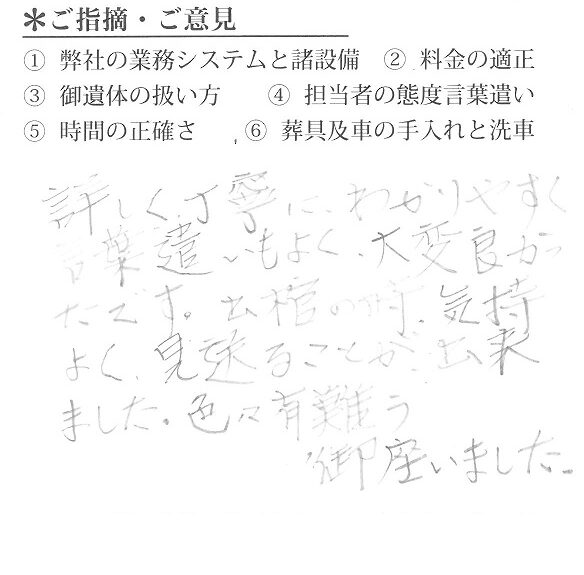 ＊ご指摘・ご意見
① 弊社の業務システムと諸設備　② 料金の適正
③ 御遺体の扱い方　④ 担当者の態度言葉遣い
⑤ 時間の正確さ　⑥ 葬具及車の手入れと洗車
詳しく丁寧に、わかりやすく
言葉遣いもよく、大変良かっ
たです。出棺の時、気持
よく、見送ることが、出来
ました。色々有難う
御座いました。